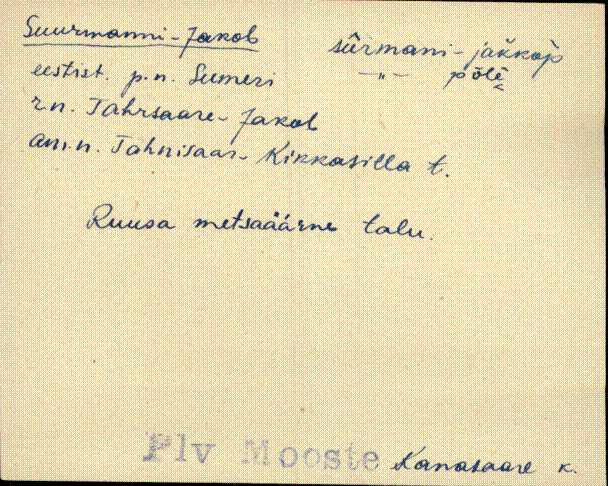 Suurmanni-Jakob sûrmani-jakkòp
eestist. p.n. Sumeri —"— põlè
r.n. Tahrsaare-Jakob
am.n. Tahnisaar- Kikkasilla t.
Ruusa metsaäärne talu.
Plv Mooste Kanasaare k.